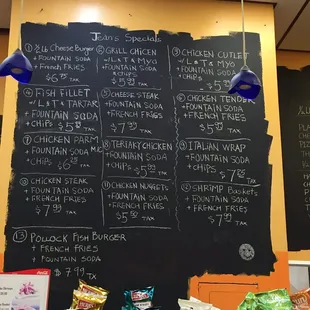 Jean's Specials
① 1/2 Lb Cheese Burger
+ Fountain Soda
+ French Fries
$6.75 TAX
② Grill Chicen
w/L&T & Mayo
+ Chips
+ Fountain Soda
$5.95 TAX
③ Chicken Cutlet
w/L&T & Mayo
+ Fountain Soda
+ Chips
$5.95 TAX
④ Fish Fillet
w/L&T & Tartar
+ Fountain Soda
+ Chips $5.95 TAX
⑤ Cheese Steak
+ Fountain Soda
+ French Fries
$7.99 TAX
⑥ Chicken Tender
+ Fountain Soda
+ French Fries
$5.50 TAX
⑦ Chicken Parm
+ Fountain Soda
+ Chips $6.25 TAX
⑧ Teriaky Chicken
+ Fountain Soda
+ French Fries
⑨ Italian Wrap
+ Fountain Soda
+ Chips
TAX
⑩ Chicken Steak
+ Fountain Soda
+ French Fries
$7.99 TAX
⑪ Chicken Nuggets
+ Fountain Soda
+ French Fries
$5.50 TAX
⑫ Shrimp Baskets
+ Fountain Soda
+ French Fries
$7.99 TAX
⑬ Pollock Fish Burger
+ French Fries
+ Fountain Soda
$7.99 TX